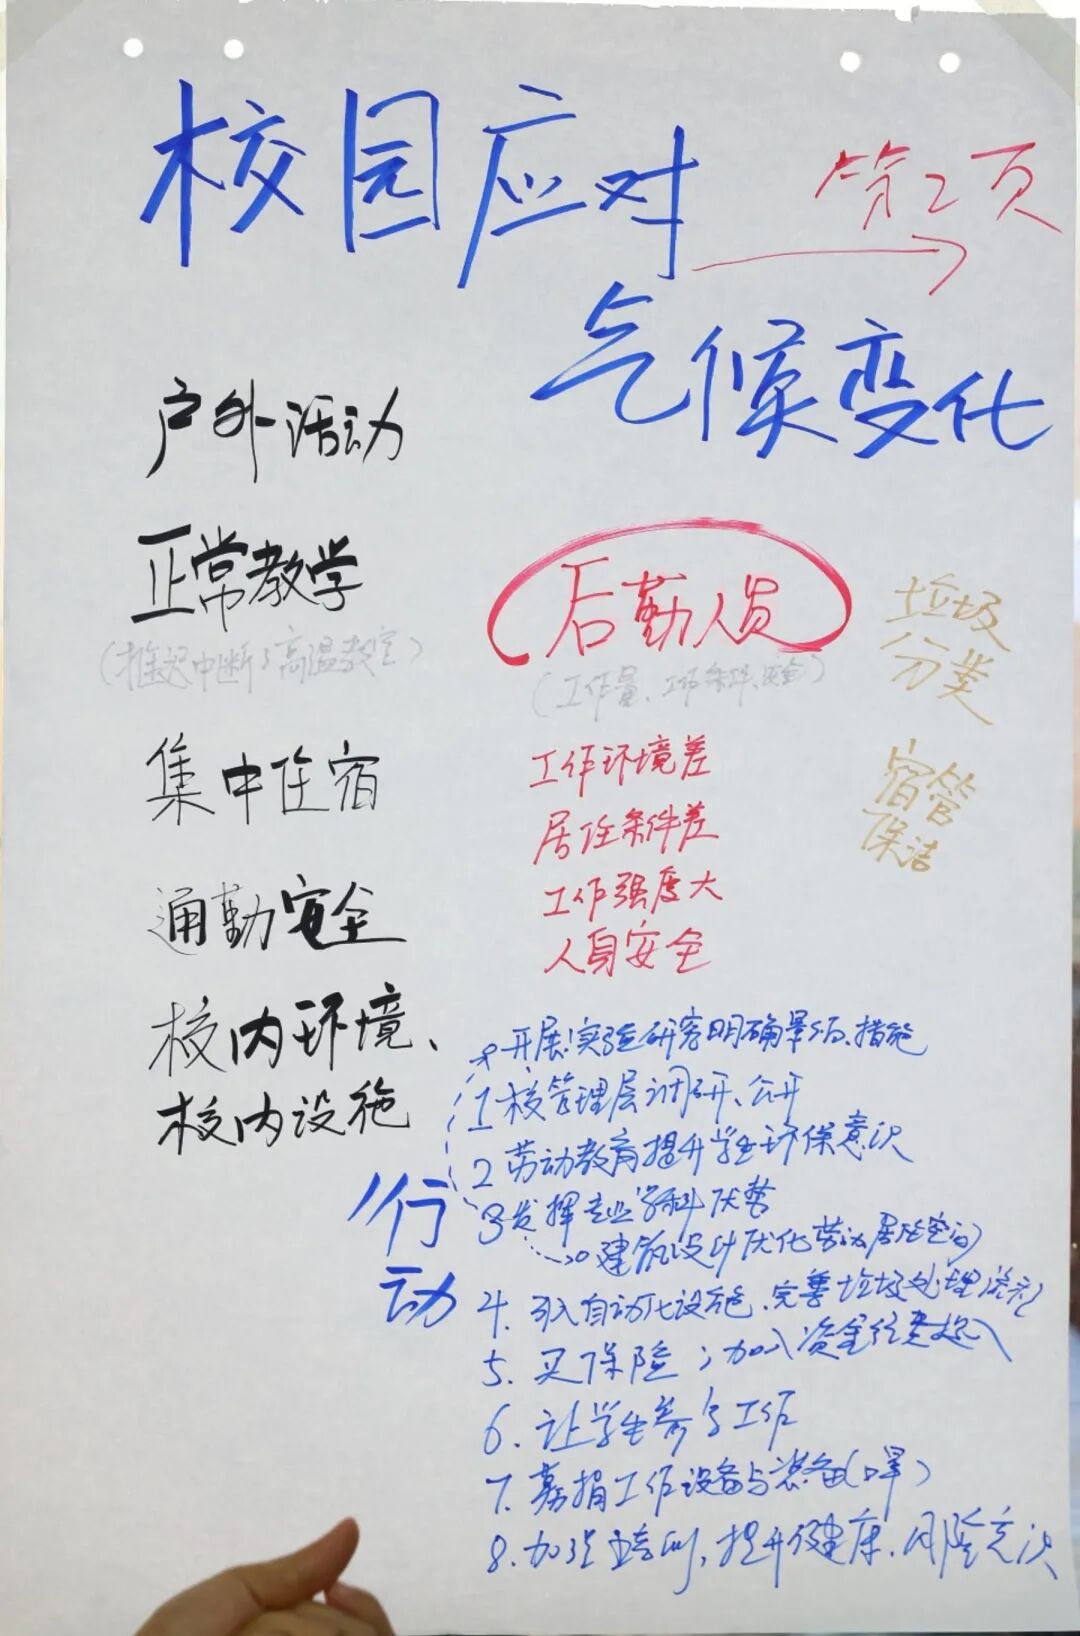 校园应对
第2页
气候变化
户外活动
正常教学
(推迟中断了高温教室)
集中住宿
通勤安全
校内环境、
校内设施
后勤人员
(工作量、工作条件、安全)
工作环境差
居住条件差
工作强度大
人身安全
垃圾
分类
宿管
保洁
行动
开展实验研究明确 措施
1 校管理层调研、公开
2 劳动教育提升学生环保意识
3 发挥专业学科优势
建筑设计优化劳动居住空间
4. 引入自动化设施、完善垃圾处理流程
5. 买保险;加入资金经费投入
6. 让学生参与工作
7. 募捐工作设备与装备(口罩)
8. 加强培训,提升健康、风险意识